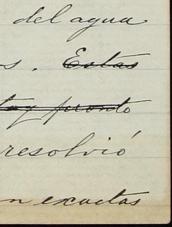 del agua
s. Estas
pronto
resolvió
n exactas